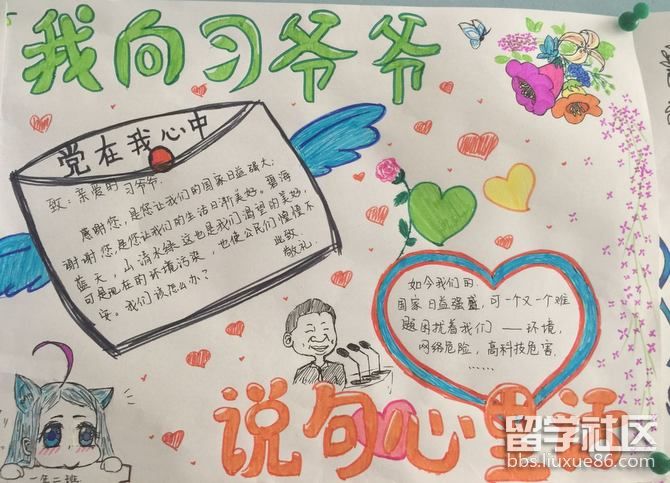 我向习爷爷
党在我心中
致：亲爱的习爷爷.
感谢您，是您让我们的国家日益强大.
谢谢您，是您让我们的生活日渐美好。碧海
蓝天，山清水绿.这也是我们渴望的美好，
可是现在的环境污染，也使公民们惶惶不
安。我们该怎么办？
此致
敬礼.
如今我们的.
国家日益强盛，可一个又一个难
题困扰着我们——环境，
网络危险，高科技危害.
……
说句心里话
一年二班
留学社区
bbs.liuxue86.com